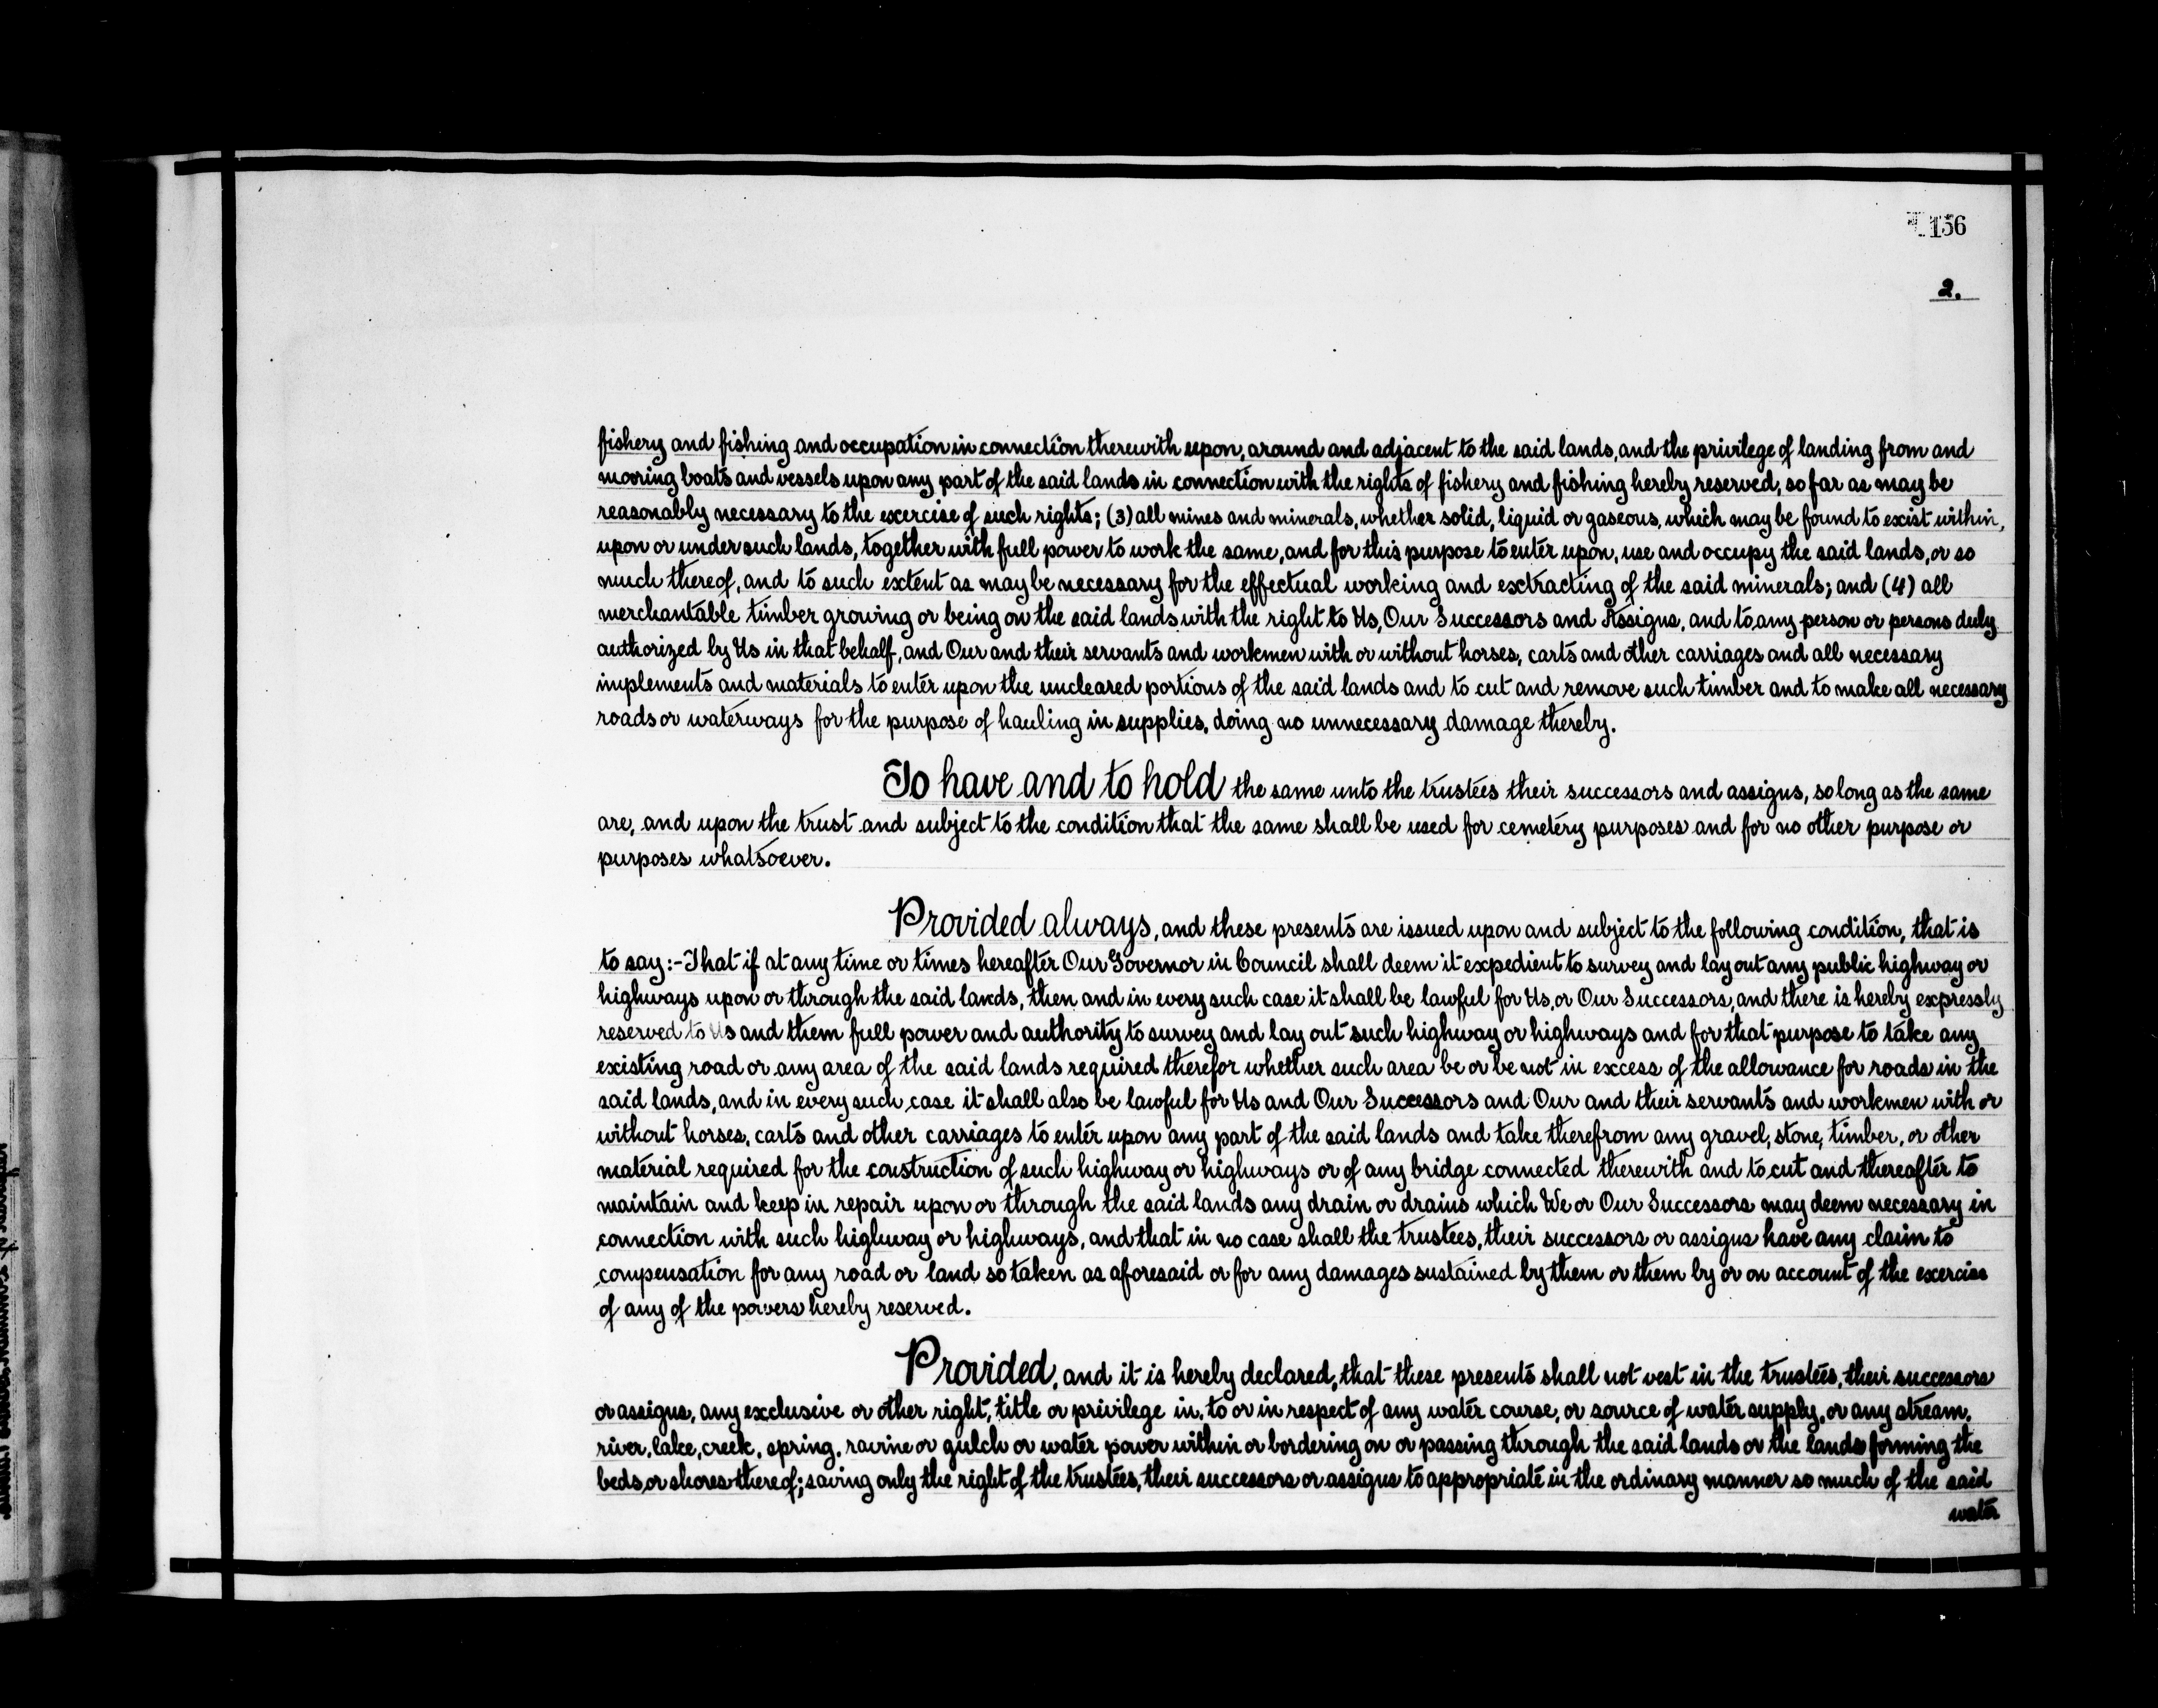 156
2.
fishery and fishing and occupation in connection therewith upon, around and adjacent to the said lands, and the privilege of landing from and
mooring boats and vessels upon any part of the said lands in connection with the rights of fishery and fishing hereby reserved, so far as may be
reasonably necessary to the exercise of such rights; (3) all mines and minerals, whether solid, liquid or gaseous, which may be found to exist within,
upon or under such lands, together with full power to work the same, and for this purpose to enter upon, use and occupy the said lands, or so
much thereof, and to such extent as may be necessary for the effectual working and extracting of the said minerals; and (4) all
merchantable timber growing or being on the said lands with the right to Us, Our Successors and Assigns, and to any person or persons duly
authorized by Us in that behalf, and Our and their servants and workmen with or without horses, carts and other carriages and all necessary
implements and materials to enter upon the uncleared portions of the said lands and to cut and remove such timber and to make all necessary
roads or waterways for the purpose of hauling in supplies, doing no unnecessary damage thereby.
To have and to hold the same unto the trustees their successors and assigns, so long as the same
are, and upon the trust and subject to the condition that the same shall be used for cemetery purposes and for no other purpose or
purposes whatsoever.
Provided always, and these presents are issued upon and subject to the following condition, that is
to say:- That if at any time or times hereafter Our Governor in Council shall deem it expedient to survey and lay out any public highway or
highways upon or through the said lands, then and in every such case it shall be lawful for Us, or Our Successors, and there is hereby expressly
reserved to Us and them full power and authority to survey and lay out such highway or highways and for that purpose to take any
existing road or any area of the said lands required therefor whether such area be or be not in excess of the allowance for roads in the
said lands, and in every such case it shall also be lawful for Us and Our Successors and Our and their servants and workmen with or
without horses, carts and other carriages to enter upon any part of the said lands and take therefrom any gravel, stone, timber, or other
material required for the construction of such highway or highways or of any bridge connected therewith and to cut and thereafter to
maintain and keep in repair upon or through the said lands any drain or drains which We or Our Successors may deem necessary in
connection with such highway or highways, and that in no case shall the trustees, their successors or assigns have any claim to
compensation for any road or land so taken as aforesaid or for any damages sustained by them or them by or on account of the exercise
of any of the powers hereby reserved.
Provided, and it is hereby declared, that these presents shall not vest in the trustees, their successors
or assigns, any exclusive or other right, title or privilege in, to or in respect of any water course, or source of water supply, or any stream,
river, lake, creek, spring, ravine or gulch or water power within or bordering on or passing through the said lands or the lands forming the
beds or shores thereof; saving only the right of the trustees, their successors or assigns to appropriate in the ordinary manner so much of the said
water